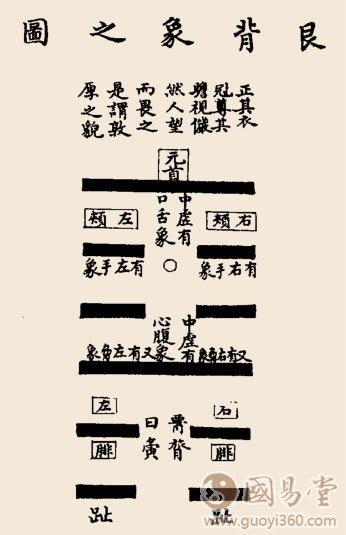 艮背象之圖
正其衣
冠尊其
瞻視儼
然人望
而畏之
是謂敦
厚之貌
元首
中虛有
口舌象
右頰
左頰
有右手象
有左手象
中虛有
心腹象
又有右
又有左
右
左
曰夤
腓
腓
趾
趾
國易堂
www.guoyi360.com